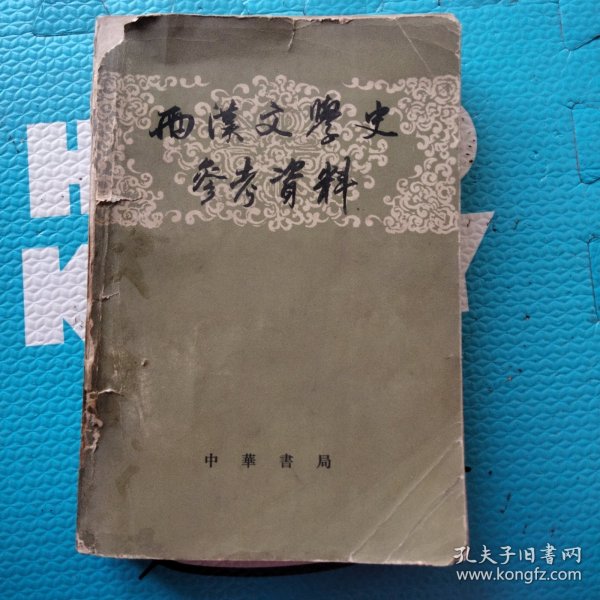 两漢文學史
參考資料
中華書局
孔夫子旧书网
www.kongfz.com